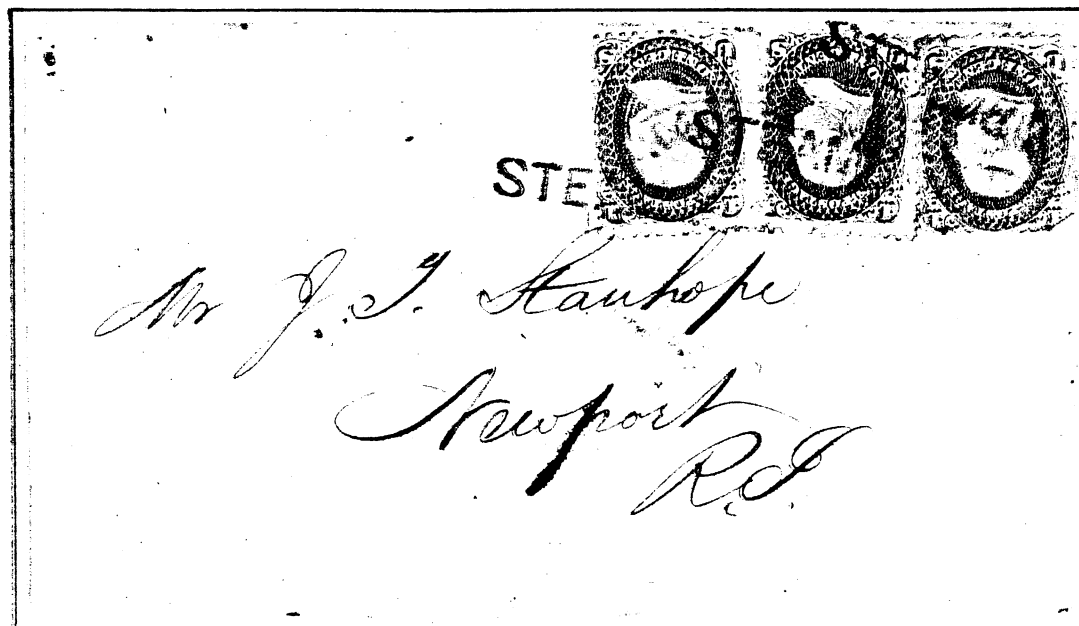 STE
ST
STE
Mr J. T. Stanhope
Newport
R.I.